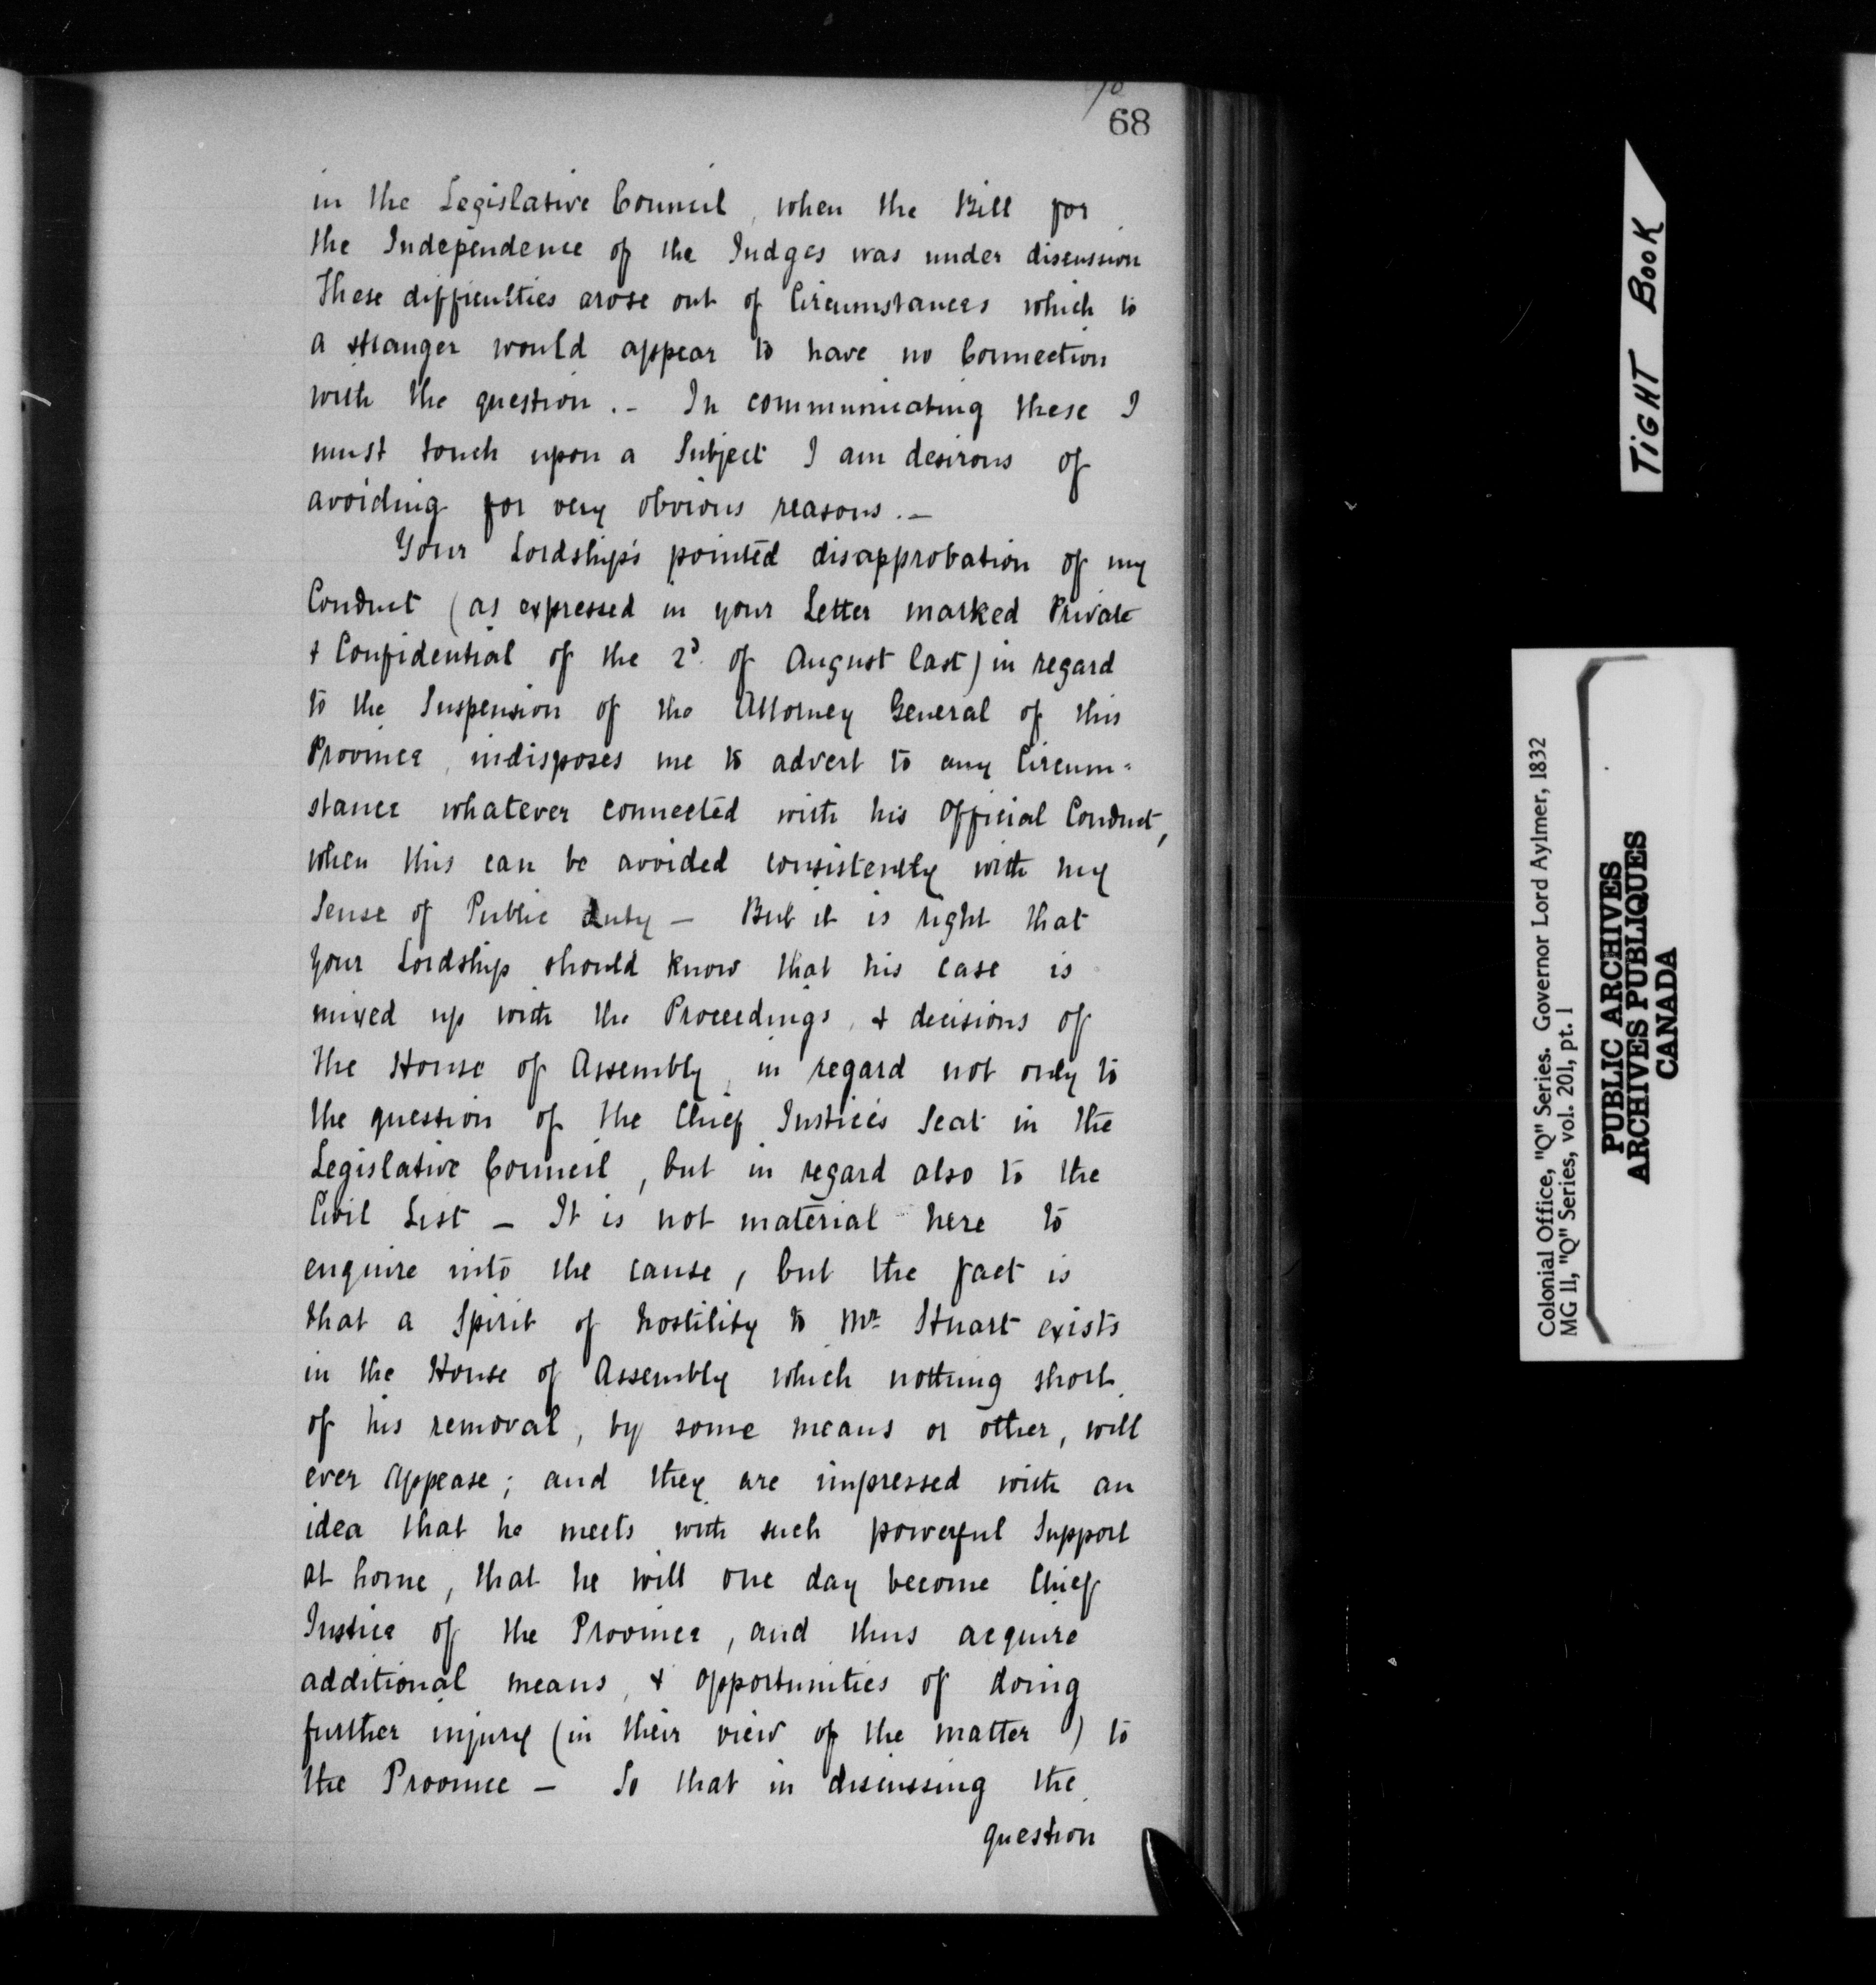 68
in the Legislative Council, when the Bill for
the Independence of the Judges was under discussion
These difficulties arose out of Circumstances which to
a stranger would appear to have no Connection
with the question. - In communicating these I
must touch upon a Subject I am desirous of
avoiding for very obvious reasons. -
Your Lordship's pointed disapprobation of my
Conduct (as expressed in your Letter marked Private
& Confidential of the 2d. of August last) in regard
to the Suspension of the Attorney General of this
Province, indisposes me to advert to any Circum=
stance whatever connected with his Official Conduct,
when this can be avoided consistently with my
Sense of Public duty - But it is right that
your Lordship should know that his case is
mixed up with the Proceedings, & decisions of
the House of Assembly, in regard not only to
the question of the Chief Justice's Seat in the
Legislative Council, but in regard also to the
Civil List - It is not material here to
enquire into the cause, but the fact is
that a Spirit of hostility to Mr Stuart exists
in the House of Assembly which nothing short
of his removal, by some means or other, will
ever appease; and they are impressed with an
idea that he meets with such powerful Support
at home, that he will one day become Chief
Justice of the Province, and thus acquire
additional means, & opportunities of doing
further injury (in their view of the matter) to
the Province - So that in discussing the
question
TIGHT BOOK
Colonial Office, "Q" Series. Governor Lord Aylmer, 1832
MG 11, "Q" Series, vol. 201, pt. 1
PUBLIC ARCHIVES
ARCHIVES PUBLIQUES
CANADA